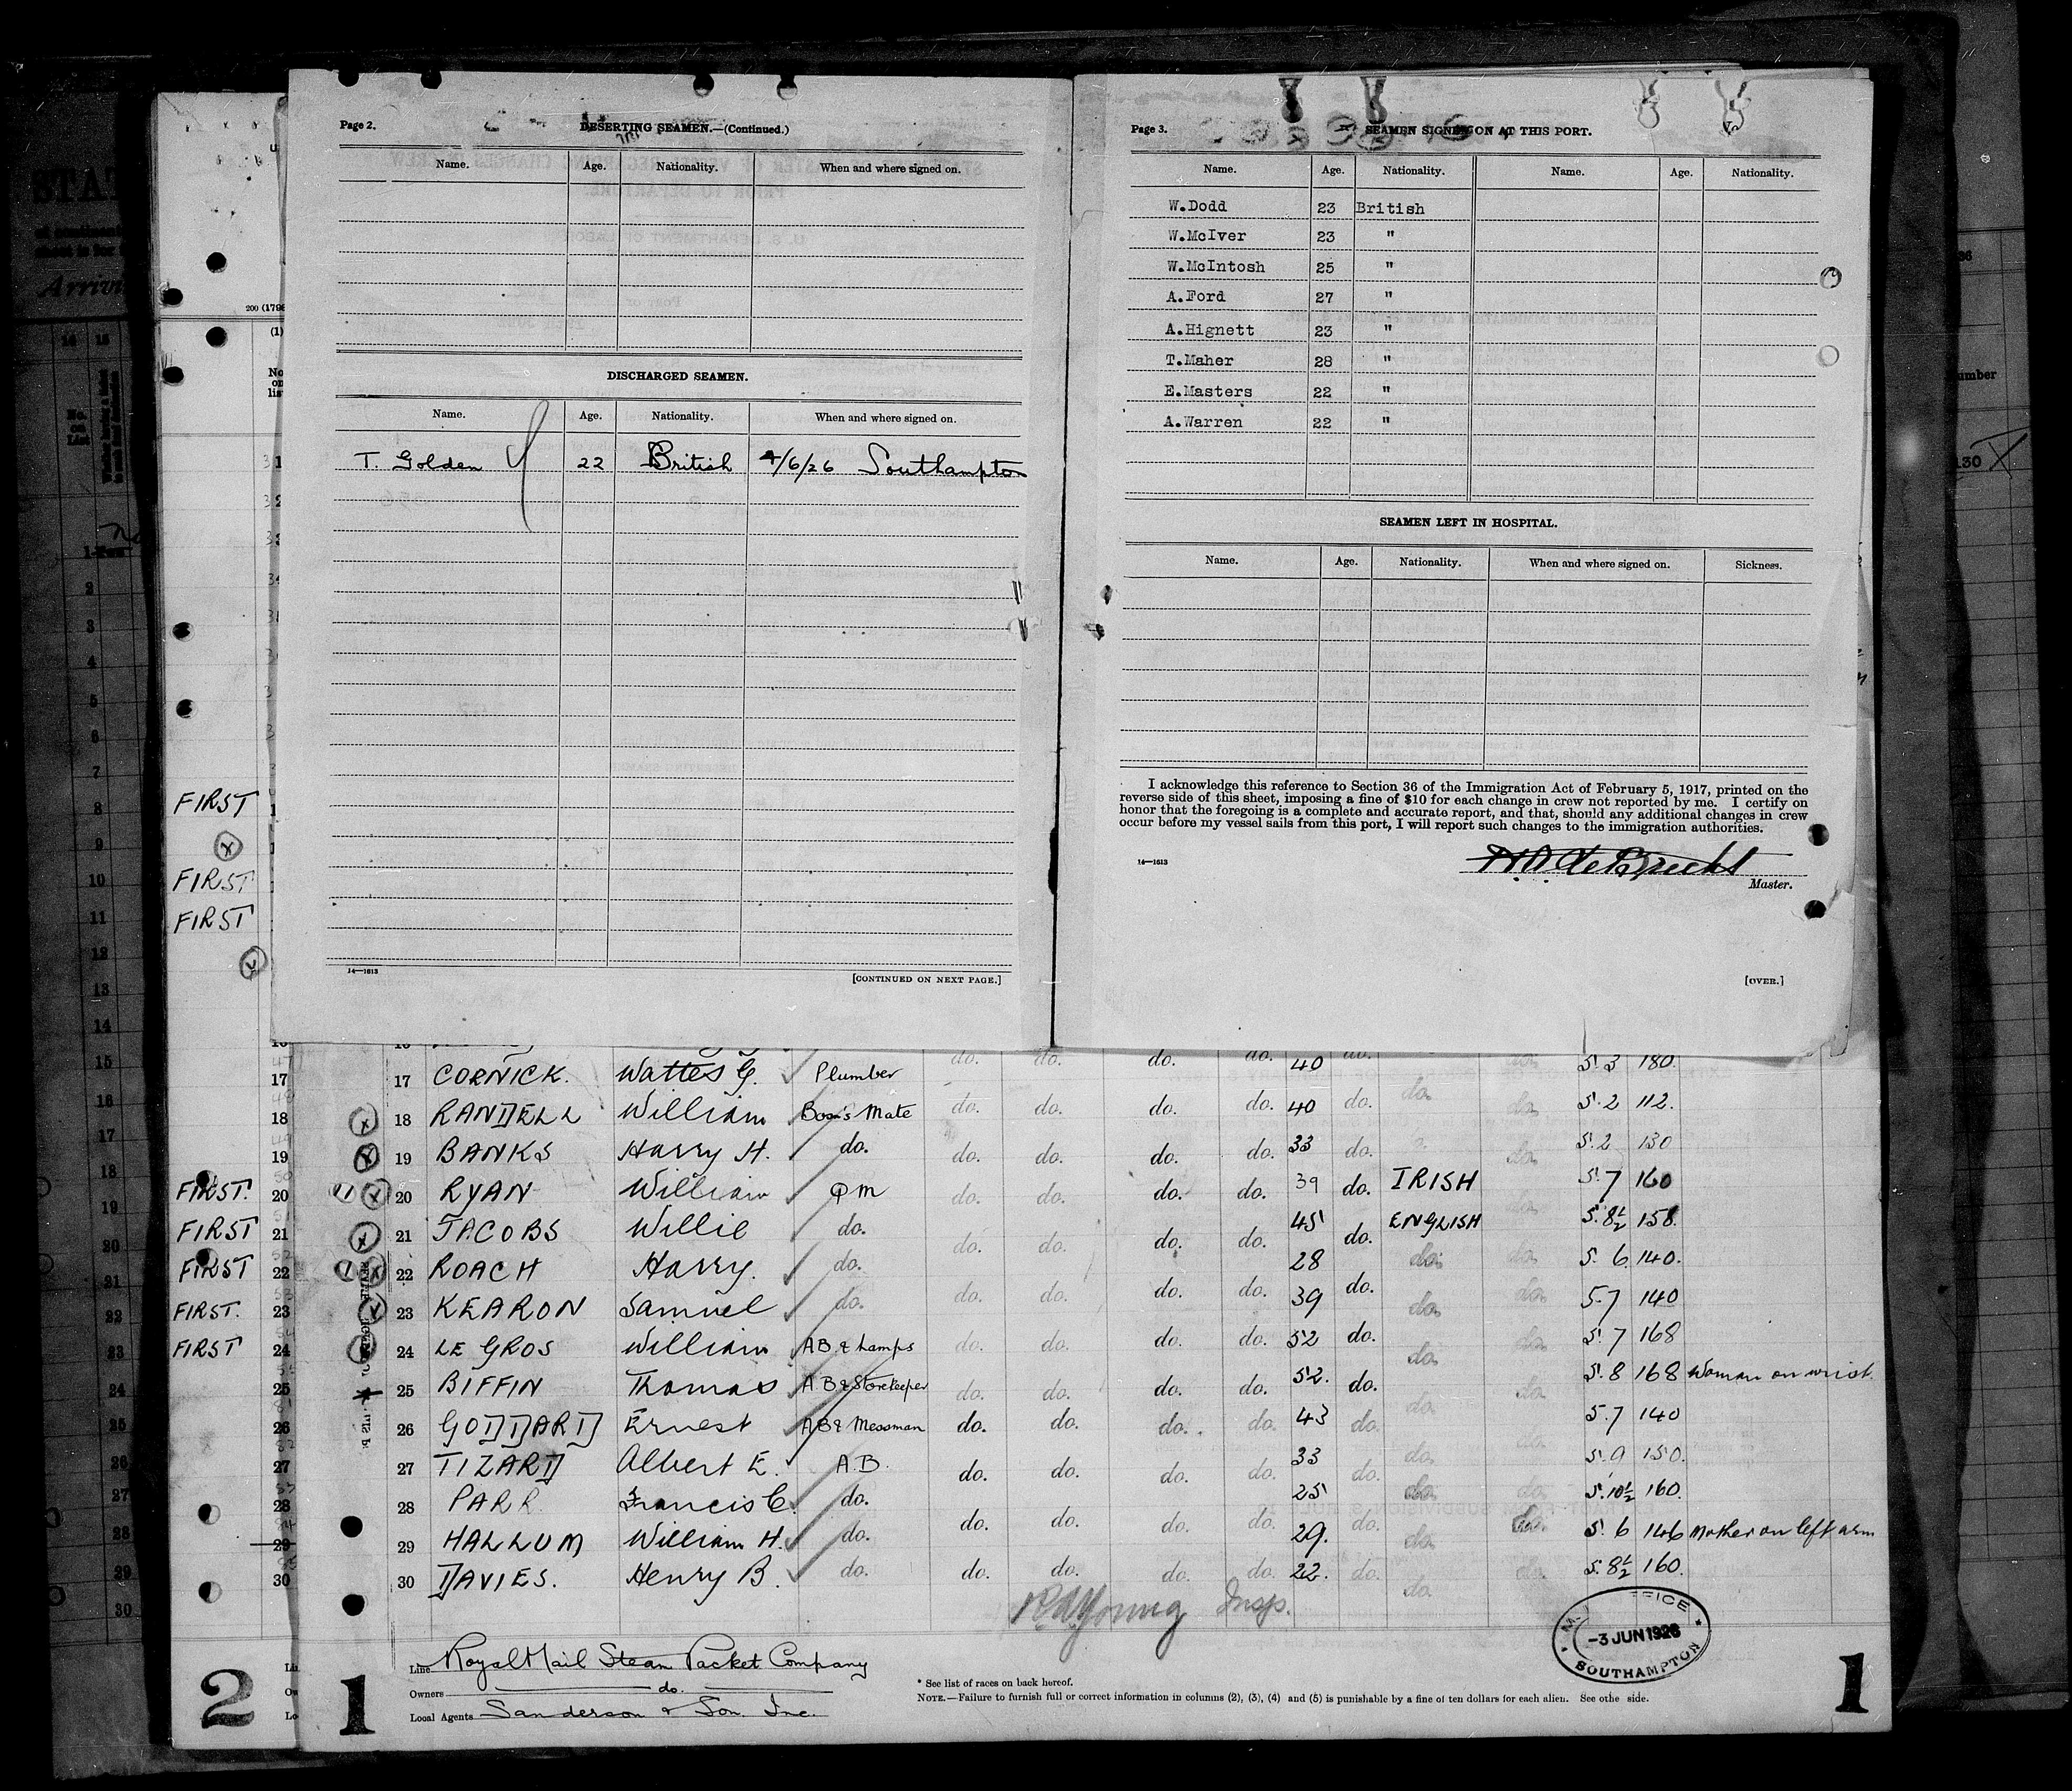 Page 2.
DESERTING SEAMEN.—(Continued.)
Name. Age. Nationality. When and where signed on.
DISCHARGED SEAMEN.
Name. Age. Nationality. When and where signed on.
T. Golden 22 British 4/6/26 Southampton
14—1613
[CONTINUED ON NEXT PAGE.]
Page 3.
SEAMEN SIGNED ON AT THIS PORT.
Name. Age. Nationality. Name. Age. Nationality.
W.Dodd 23 British
W.McIver 23 "
W.McIntosh 25 "
A.Ford 27 "
A.Hignett 23 "
T.Maher 28 "
E.Masters 22 "
A.Warren 22 "
SEAMEN LEFT IN HOSPITAL.
Name. Age. Nationality. When and where signed on. Sickness.
I acknowledge this reference to Section 36 of the Immigration Act of February 5, 1917, printed on the
reverse side of this sheet, imposing a fine of $10 for each change in crew not reported by me. I certify on
honor that the foregoing is a complete and accurate report, and that, should any additional changes in crew
occur before my vessel sails from this port, I will report such changes to the immigration authorities.
14—1613
Master.
[OVER.]
FIRST
FIRST
FIRST
17 17 CORNICK. Plumber do. do. do. do. 40 do. do. do. 5.3 180.
18 18 RANDELL William Bosn's Mate do. do. do. do. 40 do. do. do. 5.2 112.
19 19 BANKS Harry H. do. do. do. do. do. 33 do. do. 5.2 130
FIRST. 20 20 RYAN William QM do. do. do. do. 39 do. IRISH do. 5.7 160
FIRST 21 21 JACOBS Willie do. do. do. do. do. 45 do. ENGLISH 5.8½ 158.
FIRST 22 22 ROACH Harry. do. 28 do. do. 5.6 140.
FIRST. 23 23 KEARON Samuel do. do. do. do. do. 39 do. do. do. 5.7 140
FIRST 24 24 LE GROS William AB & Lamps do. do. do. do. 52 do. do. do. 5.7 168
25 25 BIFFIN Thomas AB & Storekeeper do. do. do. do. 52. do. do. do. 5.8 168 Woman on wrist.
26 26 GODDARD Ernest AB & Messman do. do. do. do. 43 do. do. do. 5.7 140
27 27 TIZARD Albert E. A.B. do. do. do. do. 33 do. do. do. 5.9 150.
28 28 PARR Francis C. do. 25 do. do. 5.10½ 160.
29 29 HALLUM William H. do. do. do. do. do. 29. do. do. do. 5.6 146 Mother on left arm
30 30 DAVIES. Henry B. do. do. do. do. do. 22. do. do. do. 5.8½ 160.
RAYoung Insp.
-3 JUN 1926
SOUTHAMPTON
2
1
Line Royal Mail Steam Packet Company
Owners do.
Local Agents Sanderson & Son. Inc.
* See list of races on back hereof.
NOTE.—Failure to furnish full or correct information in columns (2), (3), (4) and (5) is punishable by a fine of ten dollars for each alien. See othe side.
1